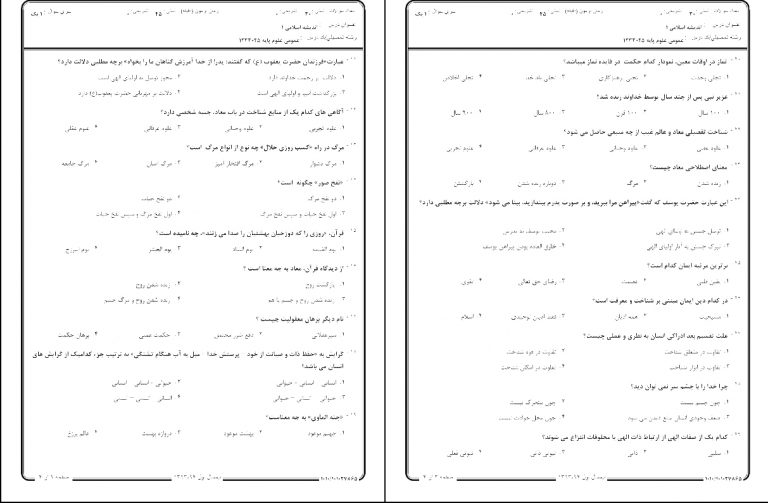 ۱۱- عبارت«فرزندان حضرت یعقوب (ع) که گفتند: پدر! از خدا آمرزش گناهان ما را بخواه» برچه مطلبی دلالت دارد؟
۱. دلالت بر رحمت خداوند دارد
۲. مجوز توسل به اولیای الهی است
۳. بزرگداشت انبیا و اولیای الهی است
۴. دلالت بر مهربانی حضرت یعقوب(ع) دارد
۱۲- آگاهی های کدام یک از منابع شناخت در باب معاد، جنبه شخصی دارد؟
۱. علوم تجربی
۲. علوم وحیانی
۳. علوم عرفانی
۴. علوم عقلی
۱۳- مرگ در راه «کسب روزی حلال» چه نوع از انواع مرگ است؟
۱. مرگ دشوار
۲. مرگ افتخار آمیز
۳. مرگ آسان
۴. مرگ جامعه
۱۴- «نفخ صور» چگونه است؟
۱. دو نفخ مرگ
۲. دو نفخ حیات
۳. اول نفخ حیات و سپس نفخ مرگ
۴. اول نفخ مرگ و سپس نفخ حیات
۱۵- قرآن، «روزی را که دوزخیان بهشتیان را صدا می زنند»، چه نامیده است؟
۱. یوم القیامه
۲. یوم التناد
۳. یوم الحشر
۴. یوم البروج
۱۶- از دیدگاه قرآن، معاد به چه معنا است؟
۱. بازگشت روح
۲. زنده شدن روح
۳. زنده شدن روح و جسم با هم
۴. زنده شدن روح و مرگ جسم
۱۷- نام دیگر برهان معقولیت چیست؟
۱. سیره عقلائی
۲. دفع ضرر محتمل
۳. حکمت عملی
۴. برهان حکمت
۱۸- گرایش به «حفظ ذات و صیانت از خود - پرستش خدا - میل به آب هنگام تشنگی» به ترتیب جزء کدامیک از گرایش های
انسان می باشد؟
۱. انسانی - انسانی - حیوانی
۲. حیوانی - انسانی - انسانی
۳. حیوانی - انسانی - حیوانی
۴. انسانی - انسانی - انسانی
۱۹- «جنة الماوی» به چه معناست؟
۱. جهنم موعود
۲. بهشت موعود
۳. دروازه بهشت
۴. عالم برزخ
۲۰- نماز در اوقات معین، نمودار کدام حکمت در فایده نماز میباشد؟
۱. تجلی وحدت
۴. تجلی اخلاص
۲۱- عزیر نبی پس از چند سال توسط خداوند زنده شد؟
۱. ۱۰۰ سال
۲. ۱۰۰ قرن
۴. ۹۰۰ سال
۲۲- شناخت تفصیلی معاد و عالم غیب از چه منبعی حاصل می شود؟
۱. علوم عقلی
۲. علوم وحیانی
۳. علوم عرفانی
۴. علوم تجربی
۲۳- معنای اصطلاحی معاد چیست؟
۱. زنده شدن
۲. مرگ
۳. دوباره زنده شدن
۴. بازگشتن
۲۴- این عبارت حضرت یوسف که گفت«پیراهن مرا ببرید، و بر صورت پدرم بیندازید، بینا می شود» دلالت برچه مطلبی دارد؟
۱. توسل جستن به اولیای الهی
۲. محبت یوسف به پدرش
۳. تبرک جستن به آثار اولیای الهی
۴. خارق العاده بودن پیراهن یوسف
۲۵- برترین مرتبه ایمان کدام است؟
۱. یقین قلبی
۲. عصمت
۳. رضای حق تعالی
۴. تقوی
۲۶- در کدام دین ایمان مبتنی بر شناخت و معرفت است؟
۱. مسیحیت
۲. همه ادیان
۴. اسلام
۲۷- علت تقسیم بعد ادراکی انسان به نظری و عملی چیست؟
۱. تفاوت در متعلق شناخت
۲. تفاوت در قوه شناخت
۳. تفاوت در ابزار شناخت
۴. تفاوت در امکان شناخت
۲۸- چرا خدا را با چشم سر نمی توان دید؟
۱. چون جسم نیست
۲. چون متحرک نیست
۳. ضعف وجودی انسان مانع دیدن می شود
۴. چون محل حوادث نیست
۲۹- کدام یک از صفات الهی از ارتباط ذات الهی با مخلوقات انتزاع می شوند؟
۱. سلبی
۲. ذاتی
۳. ثبوتی ذاتی
۴. ثبوتی فعلی